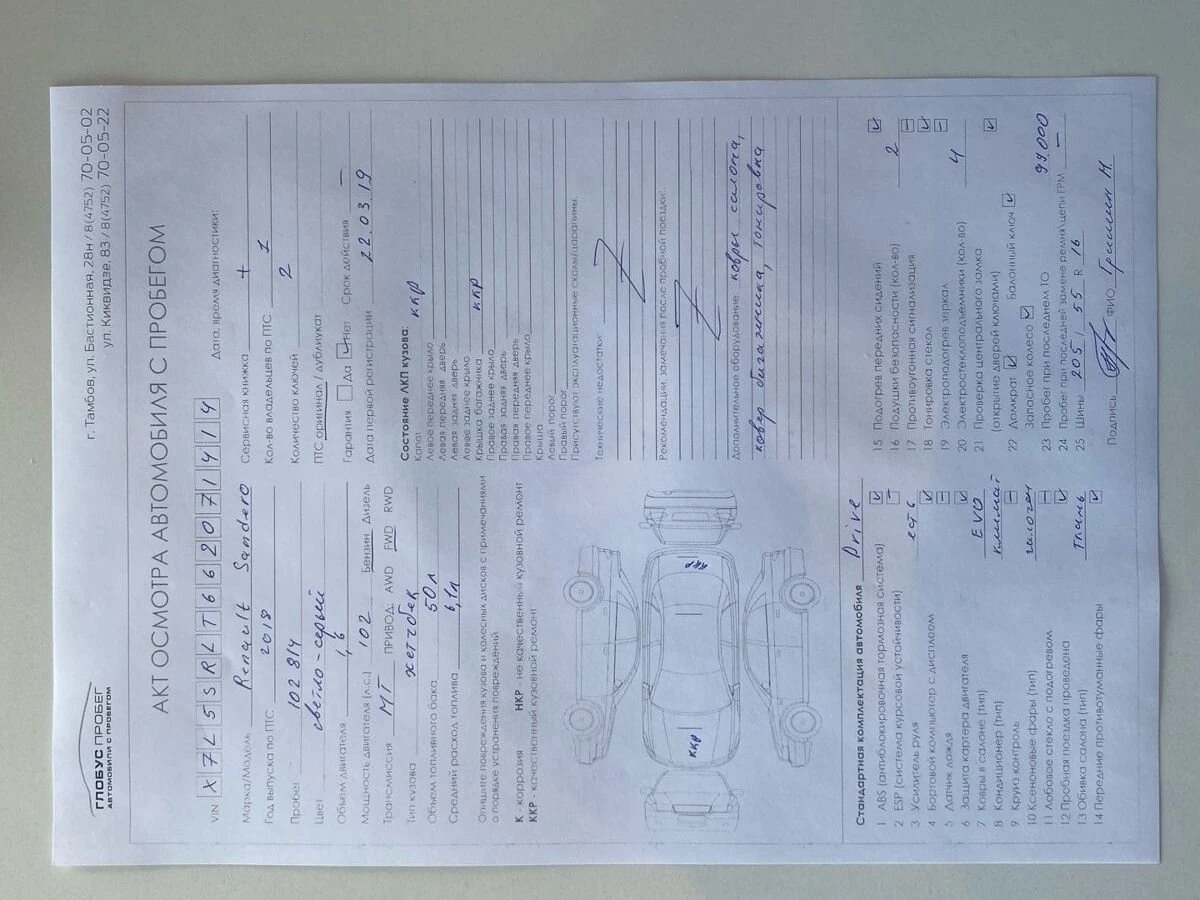 ГЛОБУС ПРОБЕГ
АВТОМОБИЛИ С ПРОБЕГОМ
г. Тамбов, ул. Бастионная, 28н / 8(4752) 70-05-02
ул. Киквидзе, 83 / 8(4752) 70-05-22
АКТ ОСМОТРА АВТОМОБИЛЯ С ПРОБЕГОМ
VIN X7L5SRLT662071414
Дата, время диагностики:
Марка/Модель Renault Sandero
Год выпуска по ПТС 2018
Пробег 102 814
Цвет светло-серый
Объем двигателя 1,6
Мощность двигателя (л.с.) 102 Бензин Дизель
Трансмиссия МТ ПРИВОД: AWD FWD RWD
Тип кузова хетчбек
Объем топливного бака 50л
Средний расход топлива 6,1л
Опишите повреждения кузова и колесных дисков с примечаниями
о порядке устранения повреждений
К - коррозия НКР - не качественный кузовной ремонт
ККР - качественный кузовной ремонт
ккр
ккр
Сервисная книжка +
Кол-во владельцев по ПТС 1
Количество ключей 2
ПТС оригинал / дубликат
Гарантия Да Нет Срок действия —
Дата первой регистрации 22.03.19
Состояние ЛКП кузова:
Капот ккр
Левое переднее крыло
Левая передняя дверь
Левая задняя дверь
Левое заднее крыло
Крышка багажника ккр
Правое заднее крыло
Правая задняя дверь
Правая передняя дверь
Правое переднее крыло
Крыша
Левый порог
Правый порог
Присутствуют эксплуатационные сколы/царапины:
Технические недостатки:
Рекомендации, замечания после пробной поездки:
Дополнительное оборудование: ковры салона,
ковер багажника, тонировка
Стандартная комплектация автомобиля Drive
1 ABS (антиблокировочная тормозная система)
2 ESP (система курсовой устойчивости)
3 Усилитель руля есть
4 Бортовой компьютер с дисплеем
5 Датчик дождя
6 Защита картера двигателя
7 Ковры в салоне (тип) EVO
8 Кондиционер (тип) климат
9 Круиз контроль
10 Ксеноновые фары (тип) галоген
11 Лобовое стекло с подогревом
12 Пробная поездка проведена
13 Обивка салона (тип) ткань
14 Передние противотуманные фары
15 Подогрев передних сидений
16 Подушки безопасности (кол-во) 2
17 Противоугонная сигнализация
18 Тонировка стекол
19 Электроподогрев зеркал
20 Электростеклоподъемники (кол-во) 4
21 Проверка центрального замка
(открытие дверей ключами)
22 Домкрат Балонный ключ
Запасное колесо
23 Пробег при последнем ТО 99,000
24 Пробег при последней замене ремня\цепи ГРМ —
25 Шины 205 / 55 R 16
Подпись ФИО Гришин М.